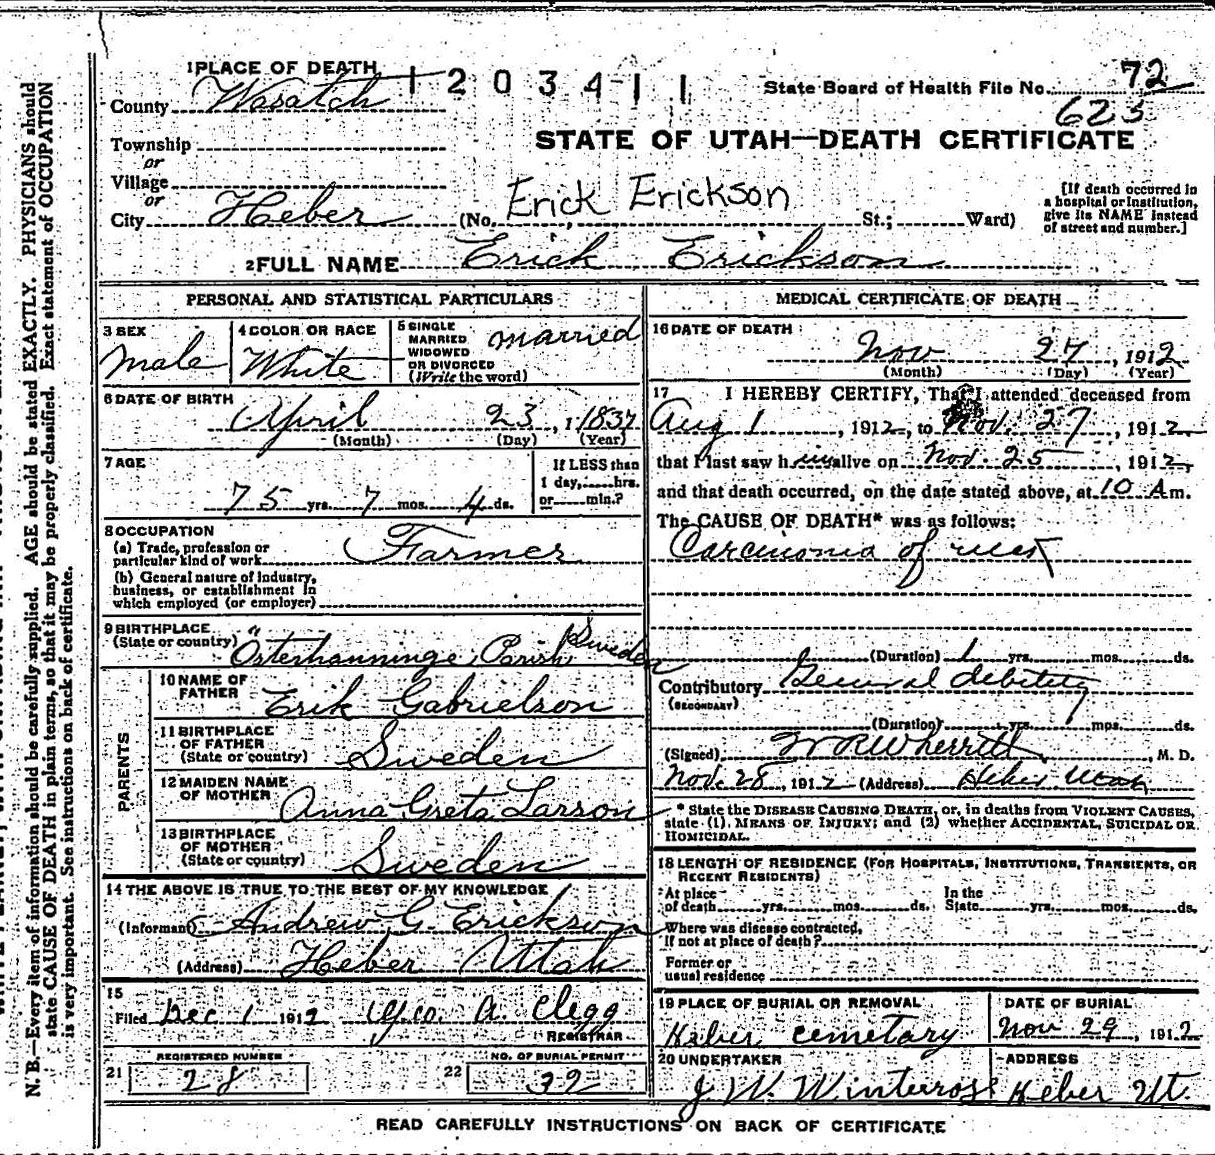 1 PLACE OF DEATH 1203411 State Board of Health File No. 72
County Wasatch 625
STATE OF UTAH—DEATH CERTIFICATE
Township
or
Village
or
City Heber (No. Erick Erickson St.; Ward)
[If death occurred in
a hospital or institution,
give its NAME instead
of street and number.]
2 FULL NAME Erick Erickson
PERSONAL AND STATISTICAL PARTICULARS
3 SEX
Male
4 COLOR OR RACE
White
5 SINGLE
MARRIED
WIDOWED
OR DIVORCED
(Write the word)
married
6 DATE OF BIRTH
April 23, 1837
(Month) (Day) (Year)
7 AGE
75 yrs. 7 mos. 4 ds.
If LESS than
1 day, hrs.
or min.?
8 OCCUPATION
(a) Trade, profession or
particular kind of work Farmer
(b) General nature of industry,
business, or establishment in
which employed (or employer)
9 BIRTHPLACE
(State or country) Österhanninge Parish Sweden
PARENTS
10 NAME OF
FATHER Erik Gabrielson
11 BIRTHPLACE
OF FATHER
(State or country) Sweden
12 MAIDEN NAME
OF MOTHER Anna Greta Larson
13 BIRTHPLACE
OF MOTHER
(State or country) Sweden
14 THE ABOVE IS TRUE TO THE BEST OF MY KNOWLEDGE
(Informant) Andrew G. Erickson
(Address) Heber Utah
15
Filed Dec 1 1912 Geo. A. Clegg
REGISTRAR
REGISTERED NUMBER
21 28
NO. OF BURIAL PERMIT
22 32
MEDICAL CERTIFICATE OF DEATH
16 DATE OF DEATH
Nov 27, 1912
(Month) (Day) (Year)
17 I HEREBY CERTIFY, That I attended deceased from
Aug 1, 1912, to Nov. 27, 1912
that I last saw him alive on Nov. 25, 1912,
and that death occurred, on the date stated above, at 10 Am.
The CAUSE OF DEATH* was as follows:
Carcinomia of
(Duration) 1 yrs. mos. ds.
Contributory General debility
(SECONDARY)
(Duration) yrs. mos. ds.
(Signed) W R Wherritt, M. D.
Nov. 28, 1912 (Address) Heber Utah
* State the DISEASE CAUSING DEATH, or, in deaths from VIOLENT CAUSES,
state (1) MEANS OF INJURY; and (2) whether ACCIDENTAL, SUICIDAL OR
HOMICIDAL.
18 LENGTH OF RESIDENCE (FOR HOSPITALS, INSTITUTIONS, TRANSIENTS, OR
RECENT RESIDENTS)
At place
of death yrs. mos. ds.
In the
State yrs. mos. ds.
Where was disease contracted,
If not at place of death?
Former or
usual residence
19 PLACE OF BURIAL OR REMOVAL
Heber cemetary
DATE OF BURIAL
Nov 29, 1912
20 UNDERTAKER
J W. Winterose
ADDRESS
Heber Ut.
READ CAREFULLY INSTRUCTIONS ON BACK OF CERTIFICATE
N. B.—Every item of information should be carefully supplied. AGE should be stated EXACTLY. PHYSICIANS should
state CAUSE OF DEATH in plain terms, so that it may be properly classified. Exact statement of OCCUPATION
is very important. See instructions on back of certificate.